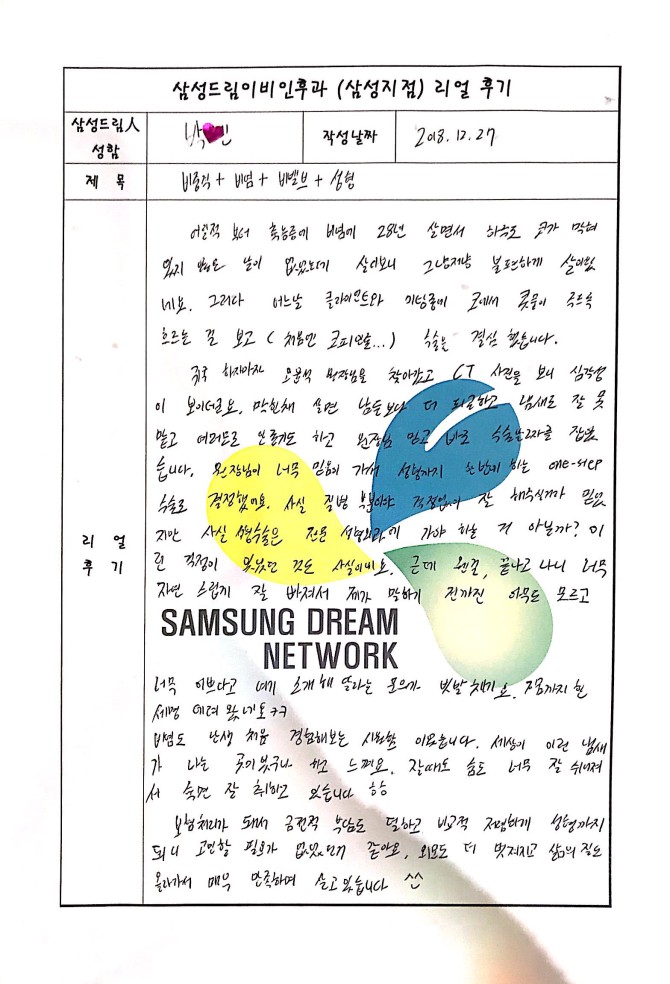 삼성드림이비인후과 (삼성지점) 리얼 후기
삼성드림人
성함
박 민
작성날짜
2018. 12. 27
제 목
비중격 + 비염 + 비밸브 + 성형
리 얼
후 기
어릴적 부터 축농증에 비염에 28년 살면서 하루도 코가 막혀
있지 않은 날이 없었는데 살다보니 그냥저냥 불편하게 살아왔
네요. 그러다 어느날 클라이언트와 미팅중에 코에서 콧물이 주르륵
흐르는 걸 보고 (처음엔 코피인줄...) 수술을 결심 했습니다.
귀국 하자마자 오윤석 원장님을 찾아갔고 CT 사진을 보니 심각성
이 보이더라고요. 막힌채 살면 남들보다 더 피곤하고 냄새도 잘 못
맡고 여러모로 안좋기도 하고 원장님 믿고 바로 수술날짜를 잡았
습니다. 원장님이 너무 믿음이 가서 성형까지 한번에 하는 one-step
수술로 결정했어요. 사실 질병 부분이야 걱정없이 잘 해주실거라 믿었
지만 사실 성형수술은 전문 성형외과에 가야 하는 거 아닐까? 이
런 걱정이 있었던 것도 사실이네요. 근데 웬걸, 끝나고 나니 너무
자연 스럽게 잘 빠져서 제가 말하기 전까진 아무도 모르고
SAMSUNG DREAM
NETWORK
너무 이쁘다고 여기 소개해 달라는 문의가 빗발쳤네요. 지금까지 한
세명 데려 왔네요 ㅋㅋ
비염도 난생 처음 경험해보는 시원함 이었습니다. 세상이 이런 냄새
가 나는 곳이었구나 하고 느껴요. 잘때도 숨도 너무 잘 쉬어져
서 숙면 잘 취하고 있습니다 ㅎㅎ
보험처리가 돼서 금전적 부담도 덜하고 비교적 저렴하게 성형까지
되니 고민할 필요가 없었던거 같아요, 외모도 더 멋져지고 삶의 질도
올라가서 매우 만족하며 살고있습니다 ^^